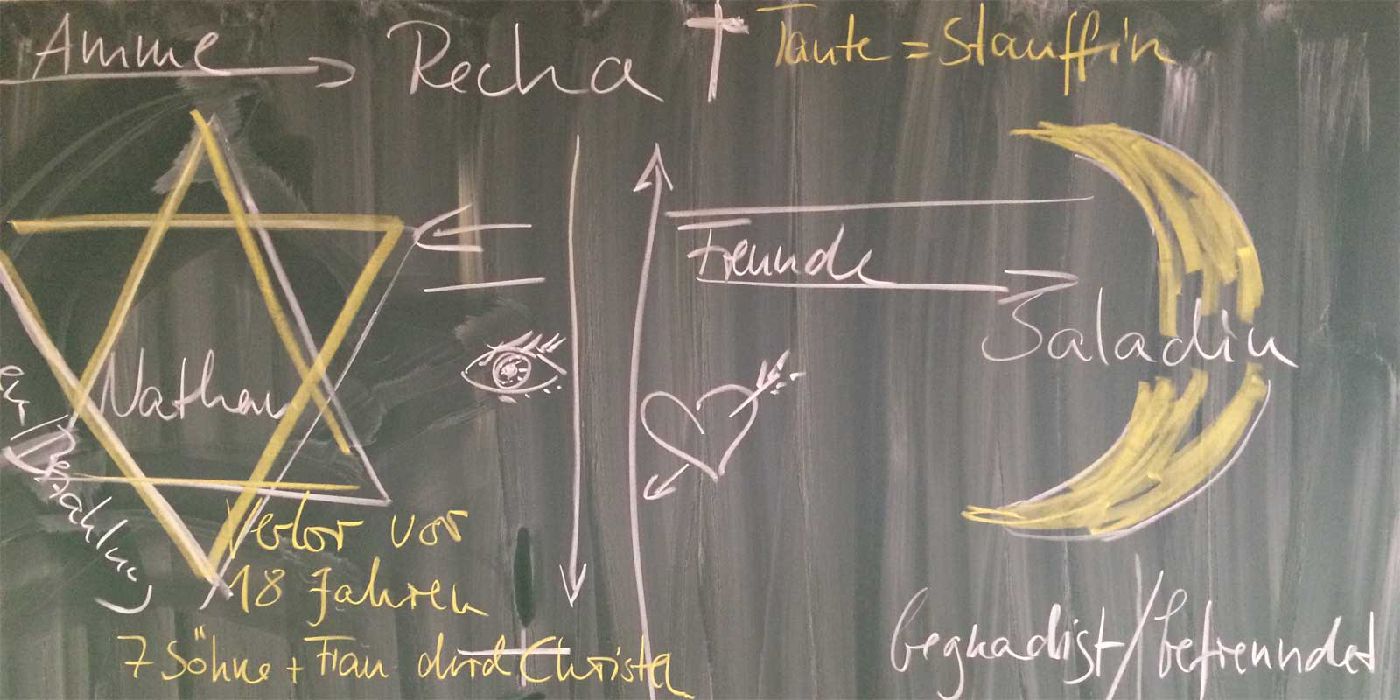 Amme Recha Tante = Stauffin
Freunde
Saladin
Nathan
Bezahlung
Verlor vor
18 Jahren
7 Söhne + Frau durch Christen
begnadigt / befreundet